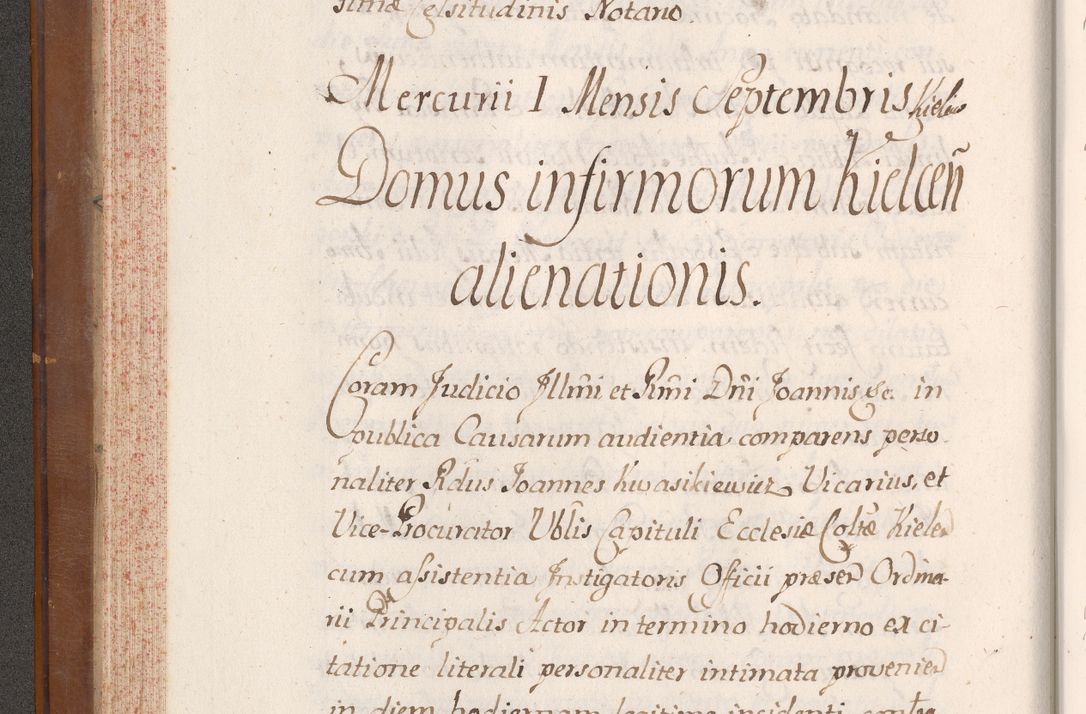 simæ Celsitudinis Notario
Mercurii 1 Mensis Septembris Kielcis
Domus infirmorum Kielceñ
alienationis.
Coram Judicio Illm̃i et Rm̃i Dñi Joannis &c. in
publica Causarum audientia comparens perso
naliter Rdus Joannes Kwasikiewicz Vicarius, et
Vice-Procurator Vblis Capituli Ecclesiæ Coltæ Kielcen
cum assistentia Instigatoris Officii præsen Ordina-
rii Principalis Actor in termino hodierno ex ci-
tatione literali personaliter intimata provenien
in diem hodiernam legitime incidenti contra